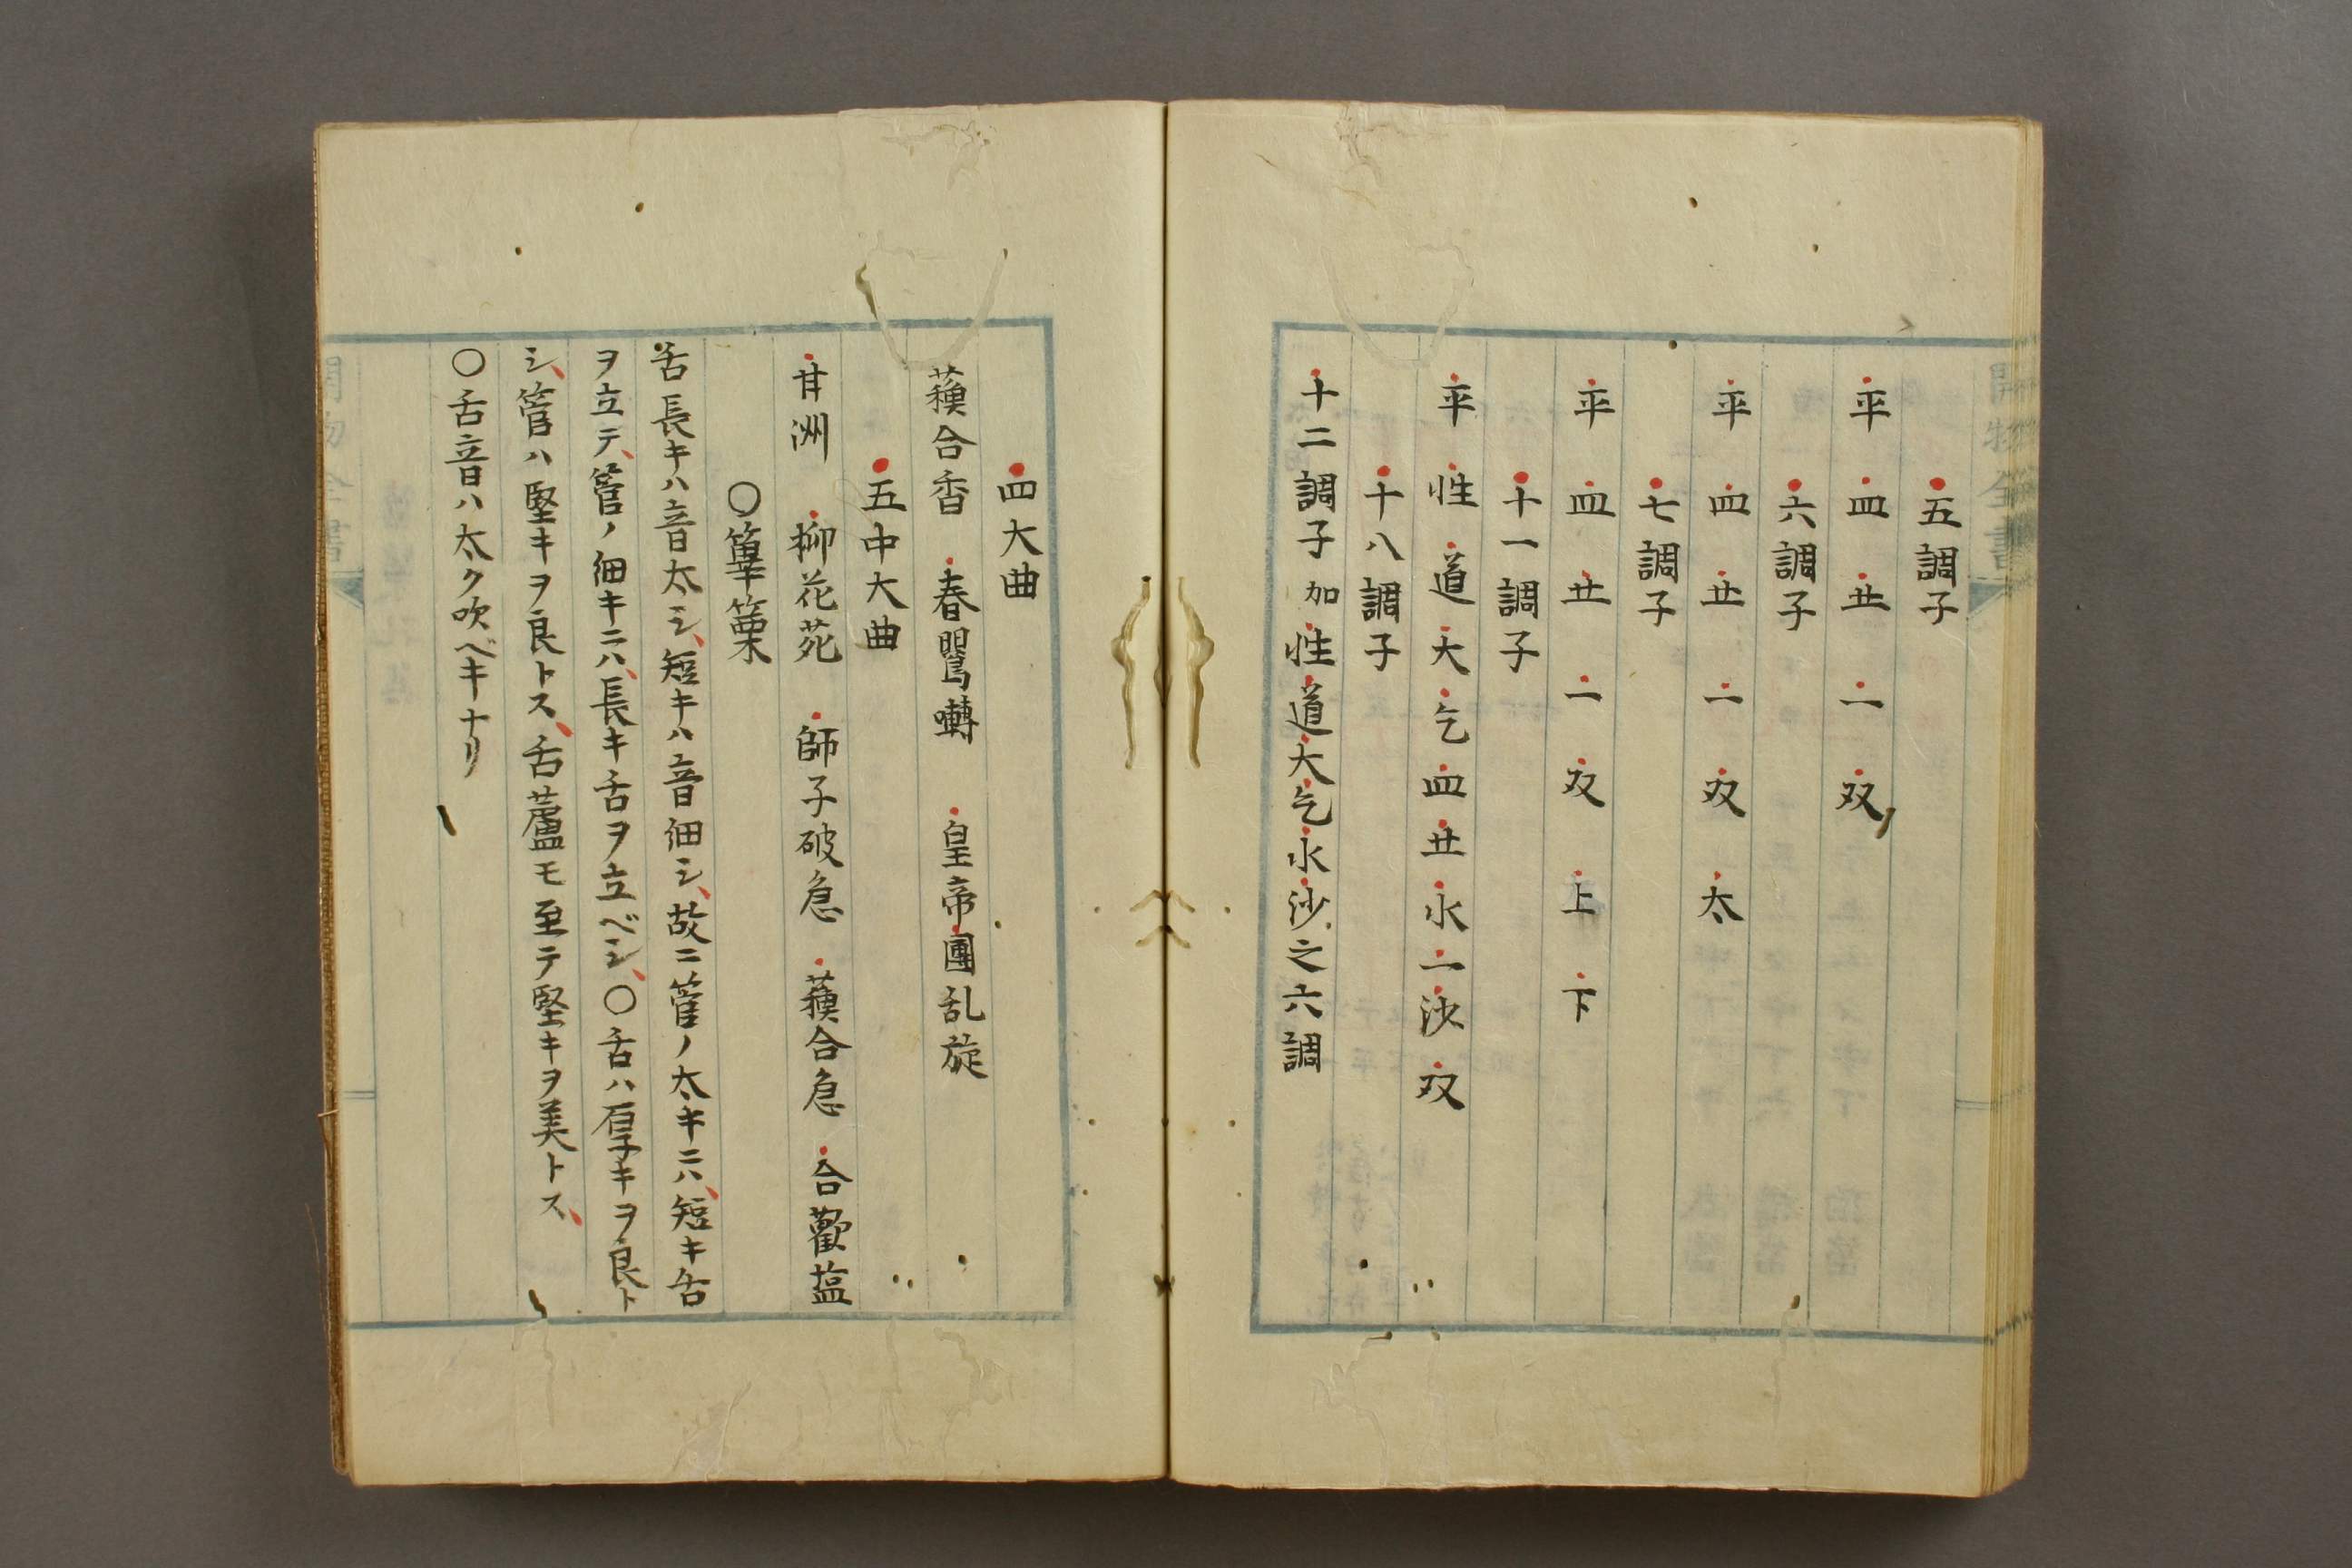 開物全書
五調子
平 皿 丗 一 双
六調子
平 皿 丗 一 双 太
七調子
平 皿 丗 一 双 上 下
十一調子
平 性 道 大 乞 皿 丗 水 一 沙 双
十八調子
十二調子加性道大乞水沙之六調
四大曲
蘓合香 春鶯囀 皇帝團乱旋
五中大曲
甘洲 柳花苑 師子破急 蘓合急 合歡塩
〇篳篥
舌長キハ音太シ、短キハ音細シ、故ニ管ノ太キニハ、短キ舌
ヲ立テ、管ノ細キニハ、長キ舌ヲ立ベシ、〇舌ハ厚キヲ良ト
シ、管ハ堅キヲ良トス、舌蘆モ至テ堅キヲ美トス、
〇舌音ハ太ク吹ベキナリ
開物全書